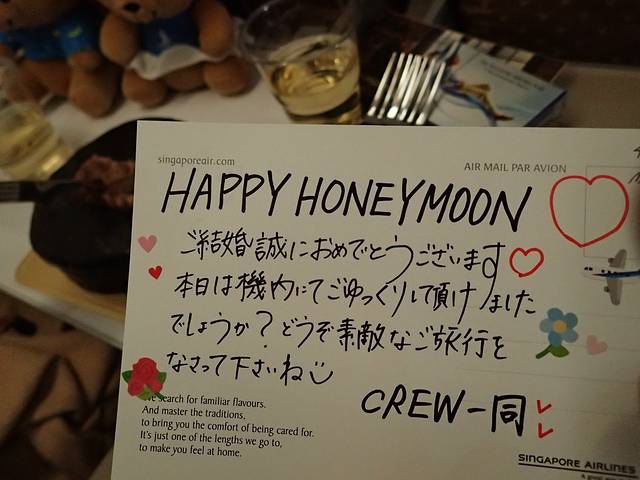 singaporeair.com
AIR MAIL PAR AVION
HAPPY HONEYMOON
ご結婚誠におめでとうございます
本日は機内にてごゆっくりして頂けました
でしょうか?どうぞ素敵なご旅行を
なさって下さいね
CREW一同
search for familiar flavours.
And master the traditions,
to bring you the comfort of being cared for.
It's just one of the lengths we go to,
to make you feel at home.
SINGAPORE AIRLINES